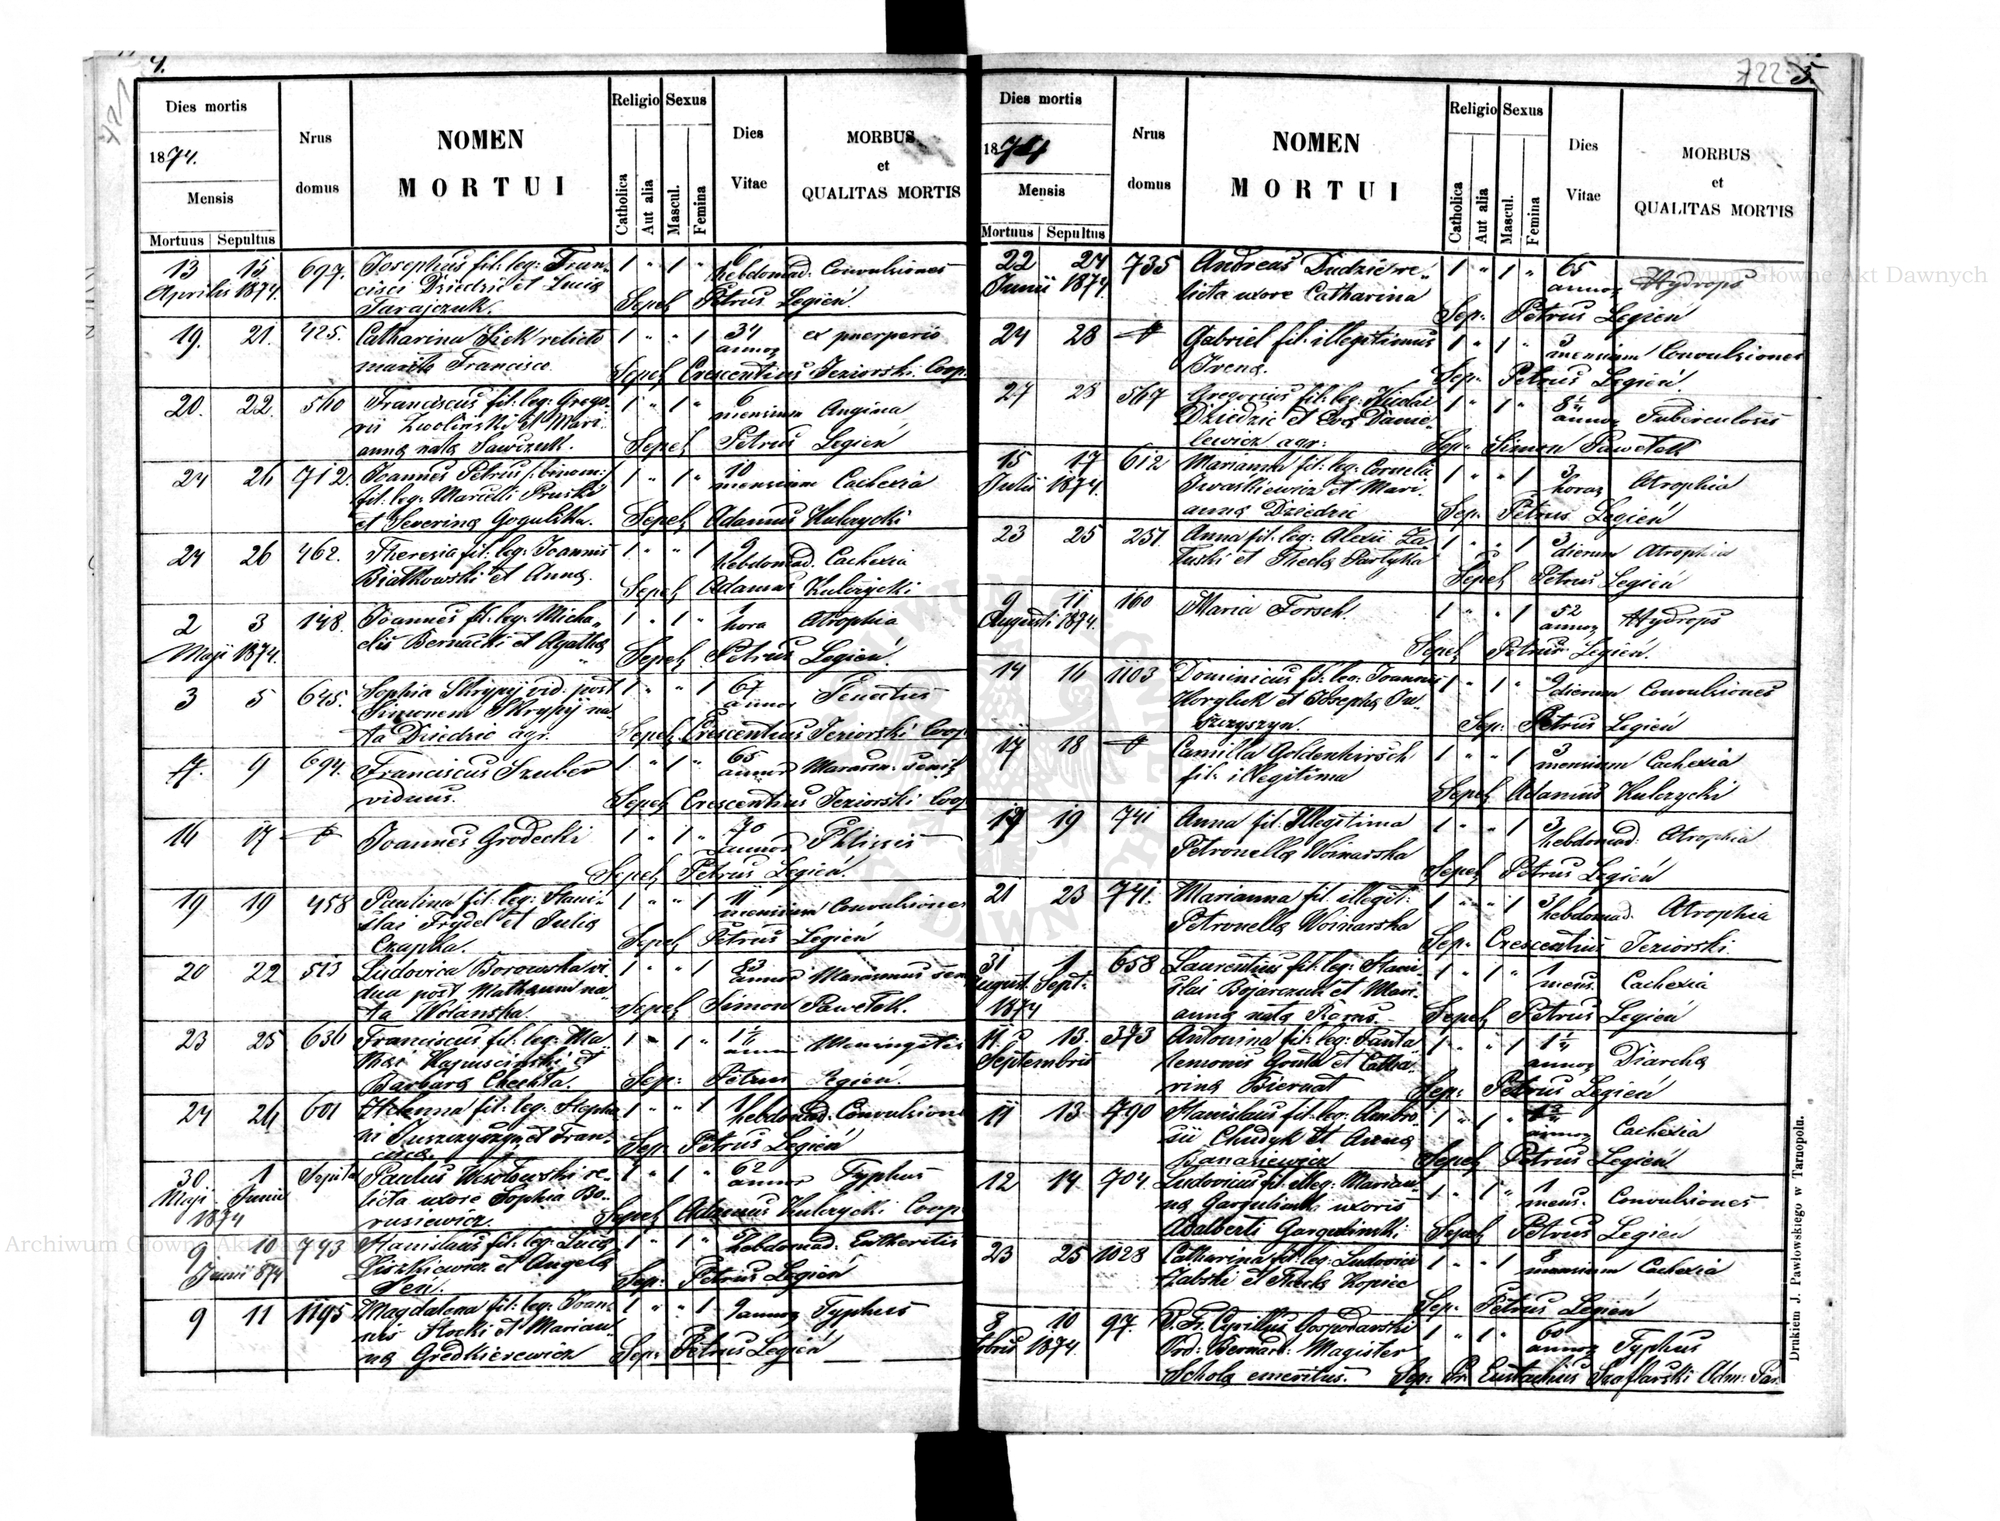 4.
421
Dies mortis
1874.
Mensis
Mortuus Sepultus
Nrus
domus
NOMEN
MORTUI
Religio
Catholica
Aut alia
Sexus
Mascul.
Femina
Dies
Vitae
MORBUS
et
QUALITAS MORTIS
13 15 697. Josephus fil: leg: Fran- 1 " 1 " 6
Aprilis 1874. cisci Dziedzic et Lucia hebdomad. Convulsiones
Tarajczuk. Sepel Petrus Legień
19. 21. 425. Catharina relicto 1 " " 1 34 ex puerperio
marito Francisco annor
Sepel Crescentius Jeziorski Coop.
20. 22. 560 Franciscus fil: leg: Grego- 1 " 1 " 6
rii Zwolinski et Mari- mensium Angina
anna nata Sawczuk. Sepel Petrus Legień
24 26 712. Joannes Petrus binom: 1 " 1 " 10
fil: leg: Marcelli Pruski mensium Cachexia
et Severina Gogulska. Sepel Adamus Kulczycki
24 26 462. Theresia fil: leg: Joannis 1 " " 1 9
Białkowski et Anna. hebdomad. Cachexia
Sepel Adamus Kulczycki
2 3 148. Joannes fil: leg: Micha- 1 " 1 " 1
Maji 1874. elis Bernacki et Agatha hora Atrophia
Sepel Petrus Legień
3 5 645. Sophia Skrypij vid: post 1 " " 1 67
Simonem Skrypij na- annor Senectus
ta Dziedzic agr. Sepel Crescentius Jeziorski Coop
7. 9 694. Franciscus Szuber 1 " 1 " 65
viduus. annor Marasm. senil
Sepel Crescentius Jeziorski Coop
16 17 Joannes Grodecki 1 " 1 " 70
annor Phtisis
Sepel Petrus Legień
19 19 458 Paulina fil: leg: Stani- 1 " " 1 11
slai Frydel et Julia mensium Convulsiones
Czapka. Sepel Petrus Legień
20 22 513 Ludovica Borowska vi- 1 " " 1 83
dua post Mathaeum na- annor Marasmus sen
ta Wolanska. Sepel Simon Pawełek.
23 25 636 Franciscus fil: leg: Ma- 1 " 1 "
thai et annor Meningitis
Barbara Chechta. Sep: Petrus Legień
24 26 601 Helenna fil: leg: Stepha- 1 " " 1
ni Juszczyszyn et Fran- hebdomad. Convulsiones
cisca. Sep: Petrus Legień
30. 1 Paulus Wesołowski re- 1 " 1 " 62
Maji Junii licta uxore Sophia Bo- annor Typhus
1874 rusiewicz. Sepel Adamus Kulczycki Coop
9 10 793 Stanislaus fil: leg: Luca 1 " 1 " 3
Junii 1874 Liszkiewicz et Angela hebdomad: Entheritis
Sep: Petrus Legień
9 11 1195 Magdalena fil: leg: Joan- 1 " " 1 9
nis Stocki et Marian- annor Typhus
na Gredkierewicz Sep: Petrus Legień
722
5.
Dies mortis
1874
Mensis
Mortuus Sepultus
Nrus
domus
NOMEN
MORTUI
Religio
Catholica
Aut alia
Sexus
Mascul.
Femina
Dies
Vitae
MORBUS
et
QUALITAS MORTIS
22 24 735 Andreas Dudzic re- 1 " 1 " 65
Junii 1874. licta uxore Catharina annor Hydrops
Sep: Petrus Legień
24 28 Gabriel fil: illegitimus 1 " 1 " 3
Irena. mensium Convulsiones
Sep: Petrus Legień
27 28 567 Gregorius fil: leg: Nicolai 1 " 1 "
Dziedzic et Eva Danie- annor Tuberculosis
lewicz agr: Sep: Simon Pawełek
15 17 612 Marianna fil: leg: Cornelii 1 " " 1 3
Julii 1874. Iwaskiewicz et Mari- horar Atrophia
anna Dziedzic Sep: Petrus Legień
23 25 251. Anna fil: leg: Alexii Za- 1 " " 1 3
łuski et Thecla Partyka dierum Atrophia
Sepel Petrus Legień
9 11 160 Maria Forsch. 1 " " 1 52
Augusti 1874. annor Hydrops
Sepel Petrus Legień
14 16 1103 Dominicus fil: leg: Joannis 1 " 1 " 9
Horyluk et Josepha Ju- dierum Convulsiones
szczyszyn. Sep: Petrus Legień
17 18 Camilla Goldenhirsch 1 " " 1 3
fil: illegitima mensium Cachexia
Sepel Adamus Kulczycki
19 741 Anna fil: Illegitima 1 " " 1 3
Petronella Woinarska hebdomad: Atrophia
Sepel Petrus Legień
21 23 741. Marianna fil: illegit: 1 " " 1 3
Petronella Woinarska hebdomad: Atrophia
Sep: Crescentius Jeziorski.
31 1 658 Laurentius fil: leg: Stani- 1 " 1 " 1
August. Sept: slai Bojarczuk et Mari- mens. Cachexia
1874 anna nata Sepel Petrus Legień
11 13. 393 Antonina fil: leg: Panta- 1 " " 1
Septembris lemonis et Catha- annor Diarrha
rina Biernat Sep: Petrus Legień
11 13 790 Stanislaus fil: leg: Ambro- 1 " 1 "
sii Chudyk et Anna annor Cachexia
Banasiewicz Sepel Petrus Legień
12 14 704. Ludovicus fil: illeg: Marian- 1 " 1 " 1
na uxoris mens. Convulsiones
Adalberti Sepel Petrus Legień
23 25 1028 Catharina fil: leg: Ludovici 1 " " 1 8
Zabski et Thecla Kopiec mensium Cachexia
Sep: Petrus Legień
8 10 97. P. Fr. Cyrillus Gospodarski 1 " 1 " 60
1874 Ord: Bernard: Magister annor Typhus
Schola emeritus. Sep: Pr. Eustachius Szaflarski Adm: Par.
Drukiem J. Pawłowskiego w Tarnopolu.
Archiwum Główne Akt Dawnych
Archiwum Główne Akt Dawnych
ARCHIWUM GŁÓWNE AKT DAWNYCH